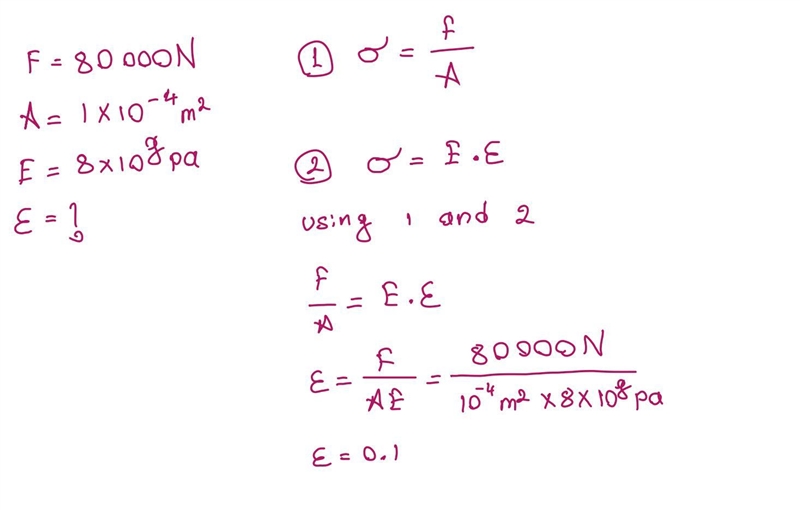 F = 80 000N
A = 1 × 10⁻⁴ m²
E = 8×10⁹ pa
ε = ?
① σ = F/A
② σ = E . ε
using 1 and 2
F/A = E . ε
ε = F/AE = 80000N / 10⁻⁴ m² × 8 × 10⁹ pa
ε = 0.1